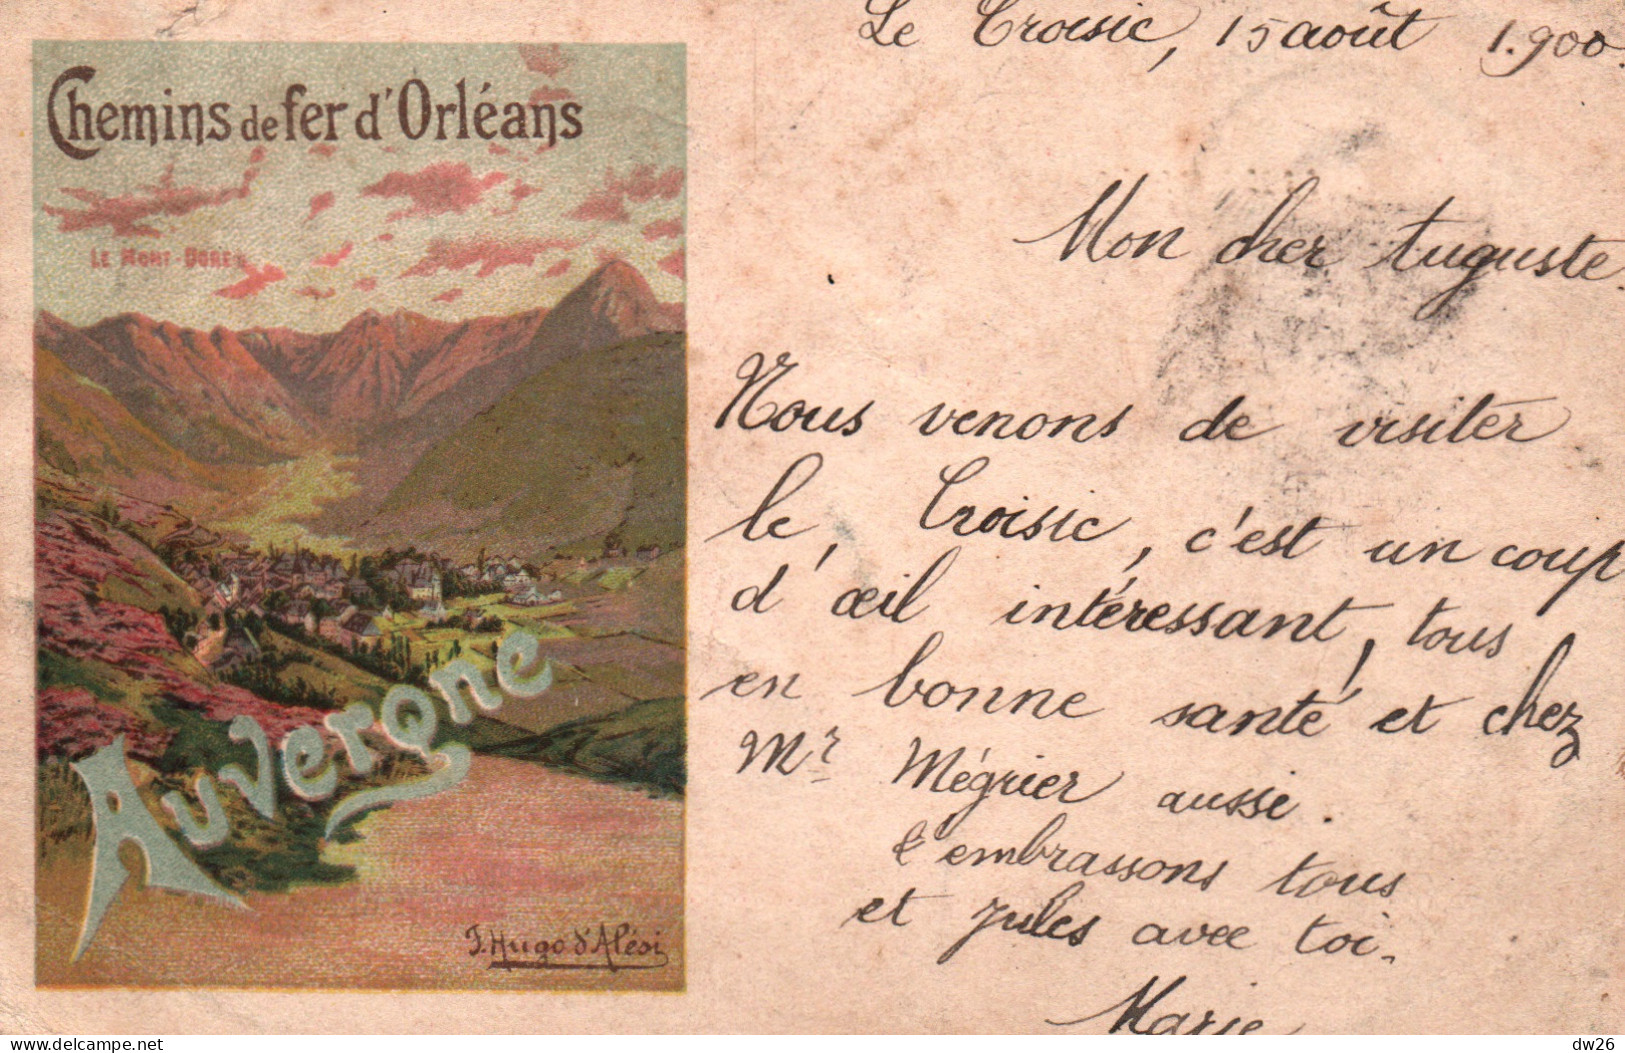 Chemins de fer d'Orléans
LE MONT-DORE
Auvergne
J. Hugo d'Alési
Le Croisic, 15 août 1.900.
Mon cher Auguste.
Nous venons de visiter
le Croisic, c'est un coup
d'œil intéressant, tous
en bonne santé et chez
Mr Mégrier aussi.
t'embrassons tous
et Jules avec toi.
Marie
delcampe.net
dw26